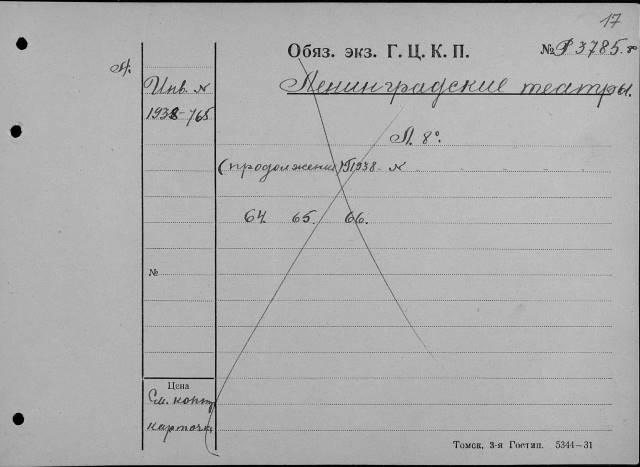 17
Обяз. экз. Г. Ц. К. П. № Р 3785.
Л.
Инв. № Ленинградские театры.
1938-765
Л. 8°.
(продолжение) 1938 - №
64 65. 66.
№
Цена
См. конт.
карточк
Томск, 3-я Гостип. 5344—31